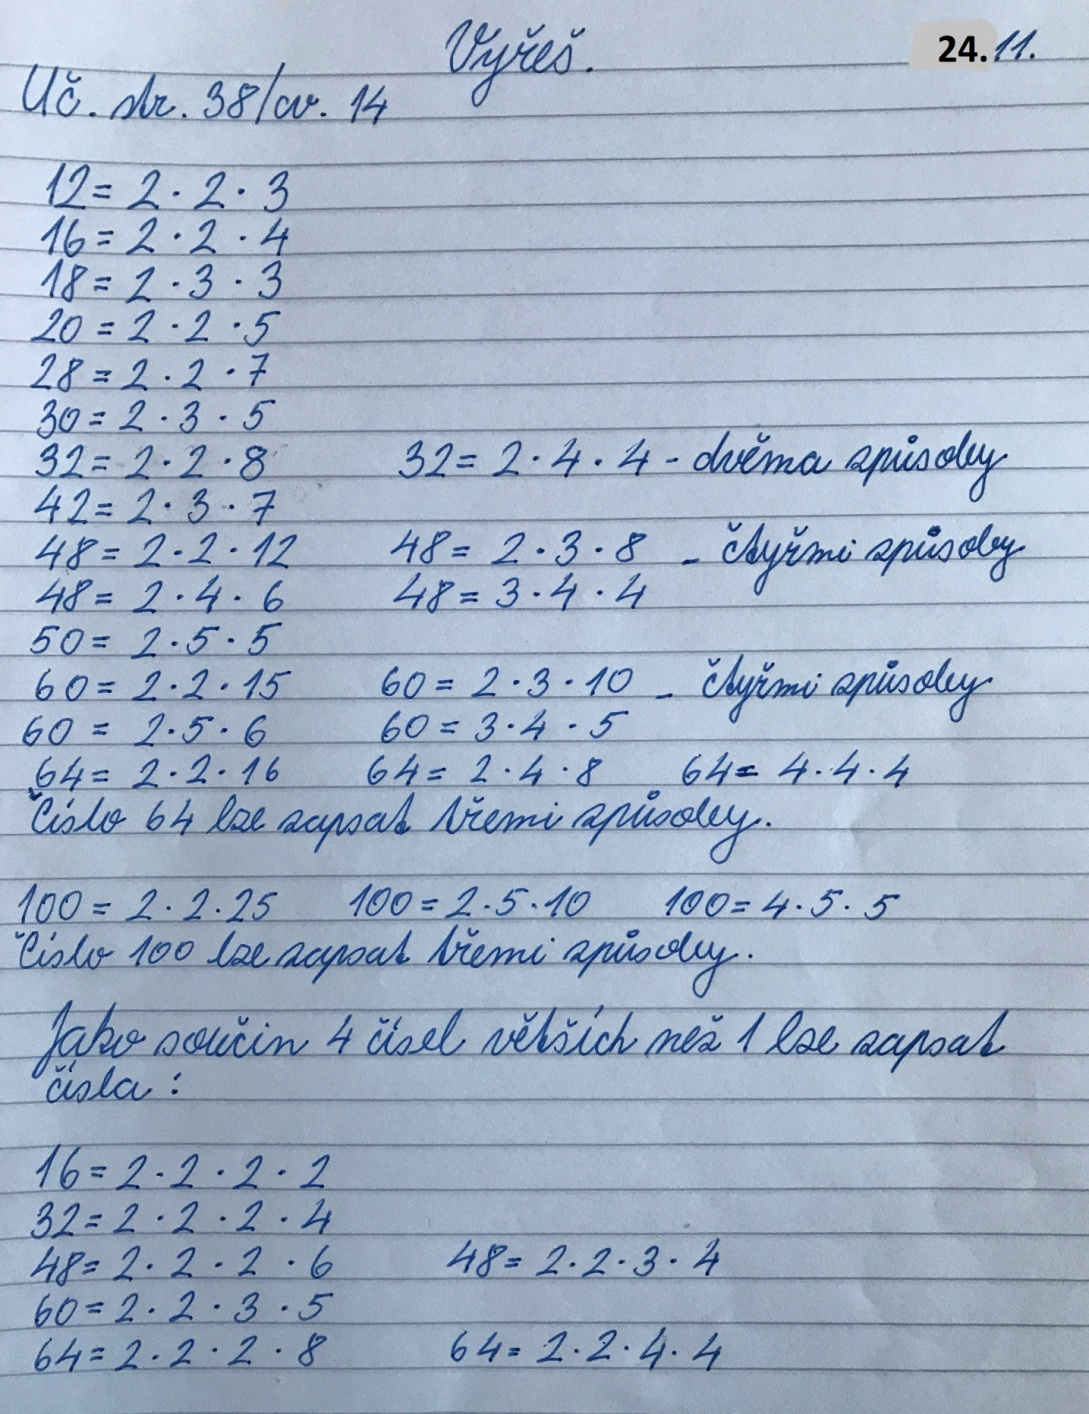 Vyřeš. 24.11.
Uč. str. 38/cv. 14
12 = 2 · 2 · 3
16 = 2 · 2 · 4
18 = 2 · 3 · 3
20 = 2 · 2 · 5
28 = 2 · 2 · 7
30 = 2 · 3 · 5
32 = 2 · 2 · 8 32 = 2 · 4 · 4 - dvěma způsoby
42 = 2 · 3 · 7
48 = 2 · 2 · 12 48 = 2 · 3 · 8 - čtyřmi způsoby
48 = 2 · 4 · 6 48 = 3 · 4 · 4
50 = 2 · 5 · 5
60 = 2 · 2 · 15 60 = 2 · 3 · 10 - čtyřmi způsoby
60 = 2 · 5 · 6 60 = 3 · 4 · 5
64 = 2 · 2 · 16 64 = 2 · 4 · 8 64 = 4 · 4 · 4
Číslo 64 lze zapsat třemi způsoby.
100 = 2 · 2 · 25 100 = 2 · 5 · 10 100 = 4 · 5 · 5
Číslo 100 lze zapsat třemi způsoby.
Jako součin 4 čísel větších než 1 lze zapsat
čísla :
16 = 2 · 2 · 2 · 2
32 = 2 · 2 · 2 · 4
48 = 2 · 2 · 2 · 6 48 = 2 · 2 · 3 · 4
60 = 2 · 2 · 3 · 5
64 = 2 · 2 · 2 · 8 64 = 2 · 2 · 4 · 4